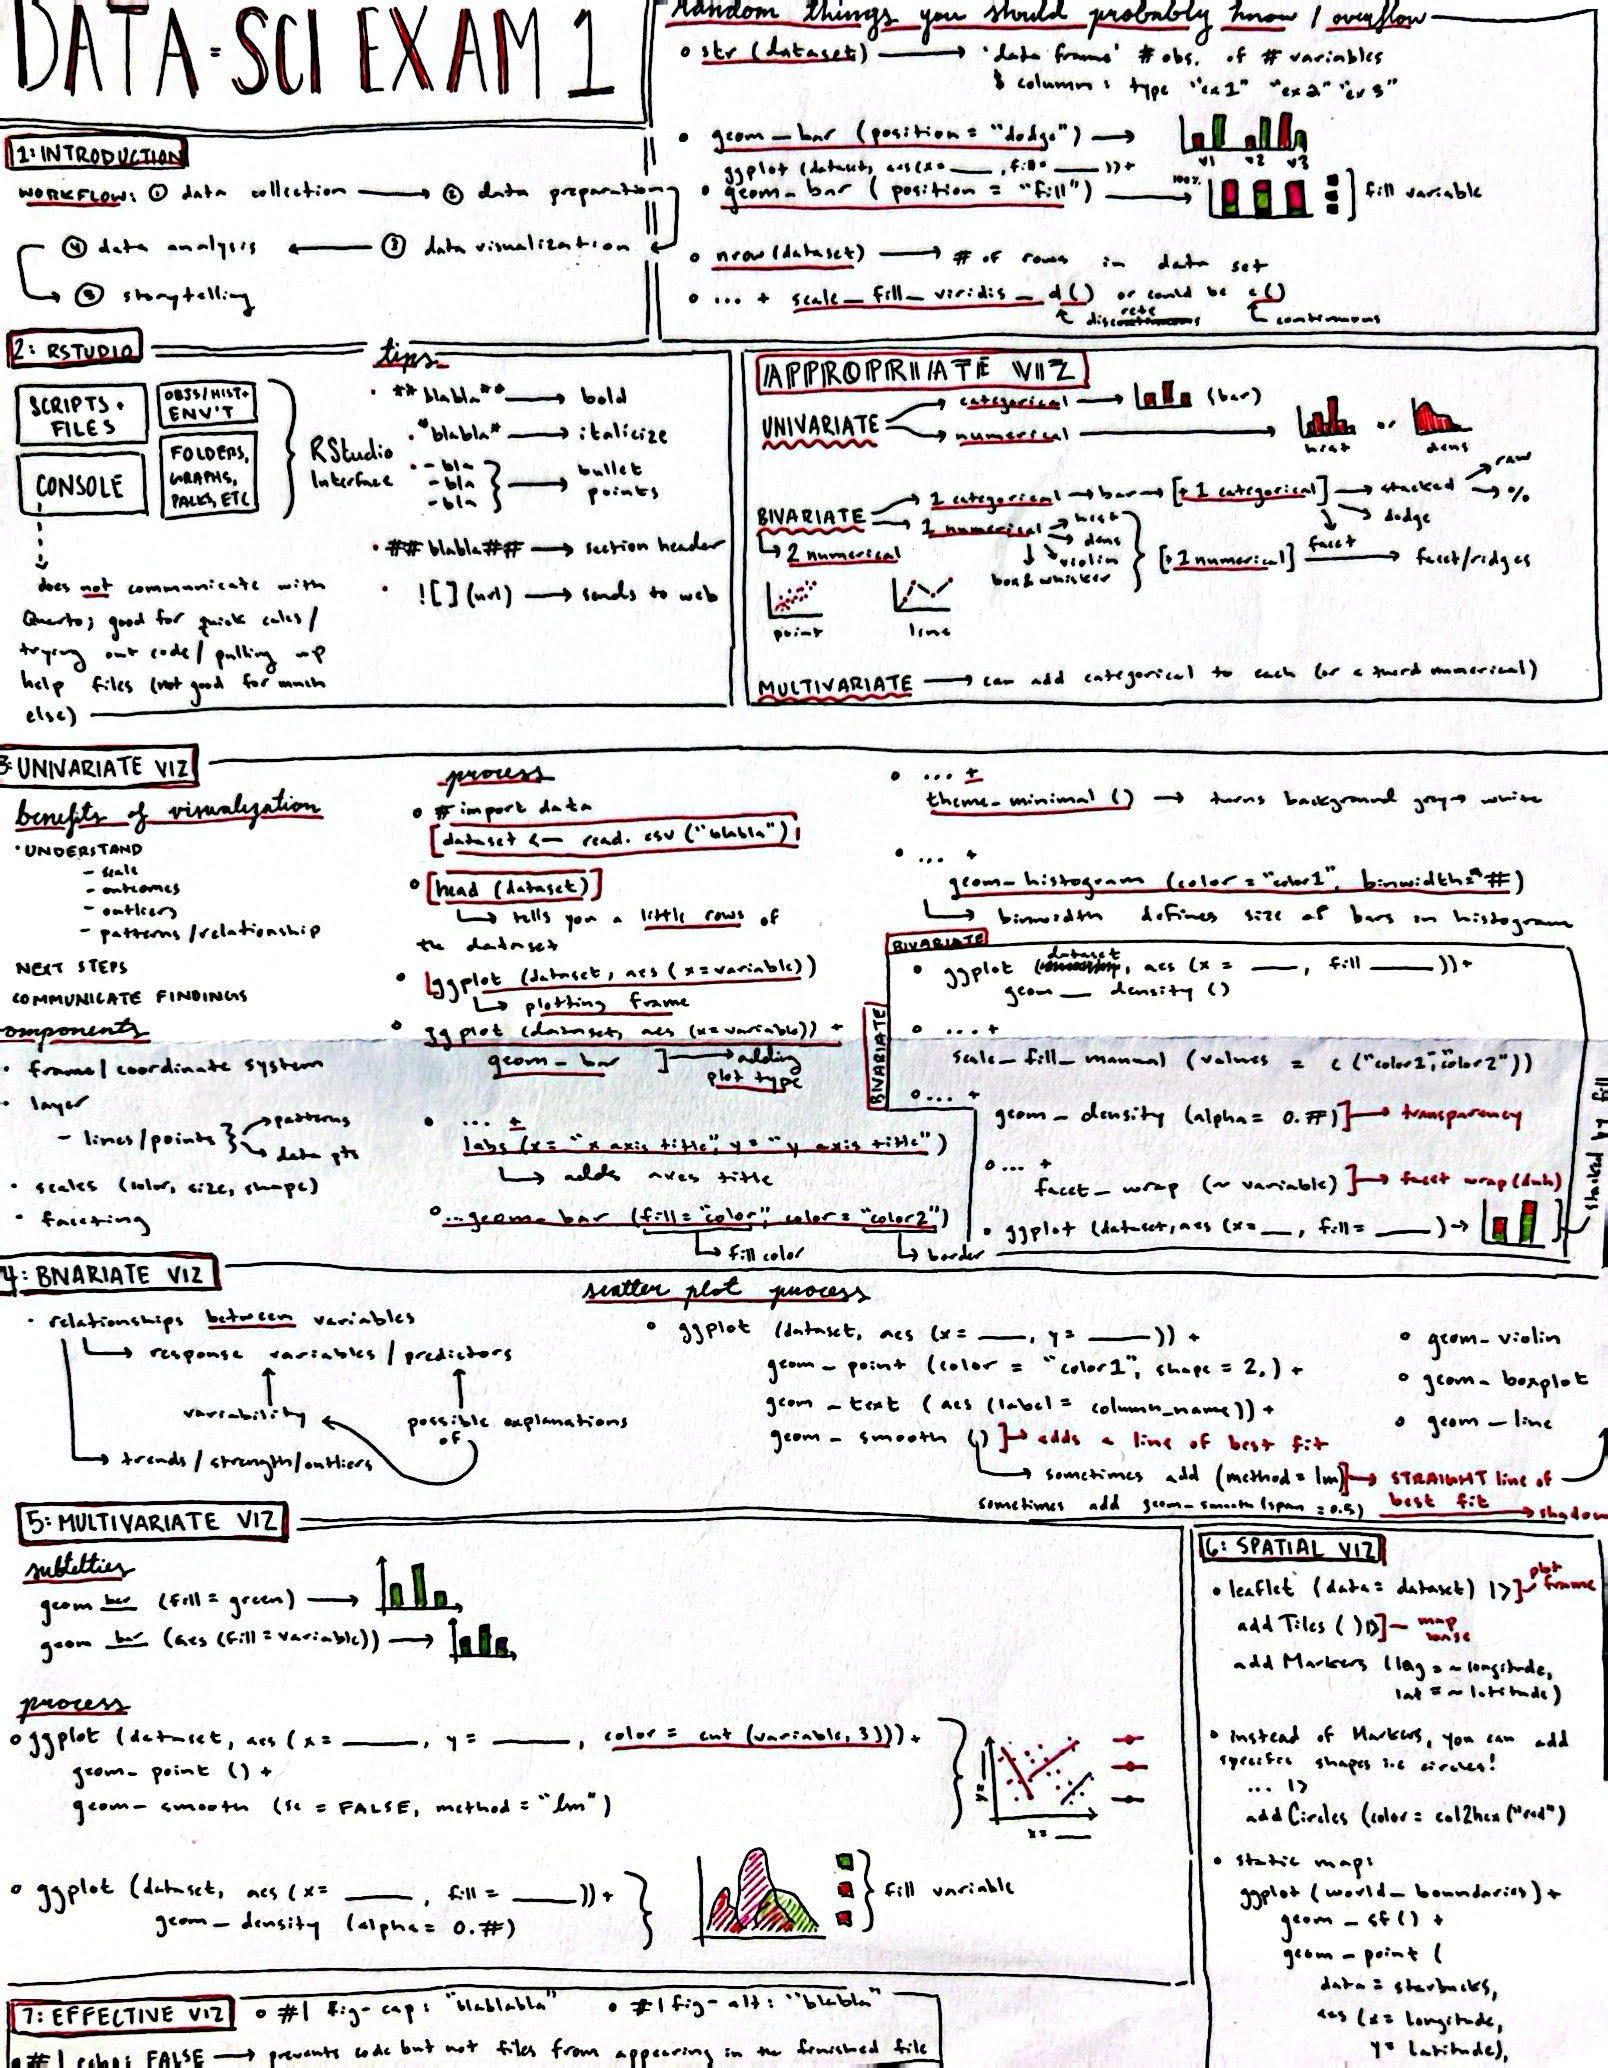 DATA-SCI EXAM 1
random things you should probably know / overflow
str (dataset) → 'data frame' # obs. of # variables
$ column: type "ex1" "ex2" "ex3"
geom_bar (position = "dodge") →
v1 v2 v3
ggplot (dataset, aes(x= ___, fill= ___)) +
geom_bar (position = "fill") → 100% fill variable
nrow(dataset) → # of rows in data set
... + scale_fill_viridis_d() or could be c()
discrete continuous
1: INTRODUCTION
WORKFLOW: ① data collection → ② data preparation
④ data analysis ← ③ data visualization
⑤ storytelling
2: RSTUDIO
SCRIPTS + FILES
OBJS/HIST + ENV'T
CONSOLE
FOLDERS, GRAPHS, PACKS, ETC
RStudio Interface
does not communicate with
Quarto; good for quick calcs/
trying out code/ pulling up
help files (not good for much
else)
tips
**blabla** → bold
*blabla* → italicize
- bla
- bla → bullet points
- bla
## blabla## → section header
![](url) → sends to web
APPROPRIATE VIZ
UNIVARIATE → categorical → (bar)
→ numerical → hist or dens
BIVARIATE → 1 categorical → bar → [+ 1 categorical] → stacked → raw
→ %
→ dodge
facet
→ 1 numerical → hist
dens
violin
box & whisker
[+ 1 numerical] → facet/ridges
→ 2 numerical
point line
MULTIVARIATE → can add categorical to each (or a third numerical)
3: UNIVARIATE VIZ
benefits of visualization
UNDERSTAND
- scale
- outcomes
- outliers
- patterns/relationship
NEXT STEPS
COMMUNICATE FINDINGS
components
frame/coordinate system
layer
- lines/points → patterns
→ data pts
scales (color, size, shape)
faceting
process
# import data
dataset <- read.csv ("blabla")
head (dataset)
→ tells you a little rows of
the dataset
ggplot (dataset, aes (x=variable))
→ plotting frame
ggplot (dataset, aes (x=variable)) +
geom_bar ] → adding plot type
... +
labs (x= "x axis title", y= "y axis title")
→ adds axes title
...geom_bar (fill="color", color="color2")
→ fill color → border
... +
theme_minimal () → turns background gray → white
... +
geom_histogram (color = "color1", binwidth = #)
→ binwidth defines size of bars in histogram
BIVARIATE
BIVARIATE
ggplot (dataset, aes (x = ___, fill ___)) +
geom_density ()
... +
scale_fill_manual (values = c ("color1","color2"))
... +
geom_density (alpha = 0.#)] → transparency
... +
facet_wrap (~ variable)] → facet wrap (duh)
ggplot (dataset, aes (x= __, fill= ___) →
stacked by fill
4: BIVARIATE VIZ
relationships between variables
→ response variables / predictors
variability possible explanations of
→ trends/strength/outliers
scatter plot process
ggplot (dataset, aes (x= ___, y= ___)) +
geom_point (color = "color1", shape = 2,) +
geom_text (aes (label = column_name)) +
geom_smooth ()] → adds a line of best fit
→ sometimes add (method = lm] → STRAIGHT line of best fit
sometimes add geom_smooth (span = 0.5) → shadow
geom_violin
geom_boxplot
geom_line
5: MULTIVARIATE VIZ
subtelties
geom bar (fill = green) →
geom bar (aes (fill = variable)) →
process
ggplot (dataset, aes (x= ___, y= ___, color = cut (variable, 3))) +
geom_point () +
geom_smooth (se = FALSE, method = "lm")
y= __
x= __
ggplot (dataset, aes (x= ___, fill = ___)) +
geom_density (alpha= 0.#)
fill variable
6: SPATIAL VIZ
leaflet (data = dataset) |>] plot frame
addTiles ()|>] map base
addMarkers (lng = ~longitude,
lat = ~latitude)
instead of Markers, you can add
specific shapes i.e circles!
... |>
addCircles (color = col2hex("red")
static map:
ggplot (world_boundaries) +
geom_sf() +
geom_point (
data = starbucks,
aes (x = longitude,
y = latitude),
7: EFFECTIVE VIZ #| fig-cap: "blablabla" #| fig-alt: "blabla"
#| echo: FALSE → prevents code but not files from appearing in the finished file